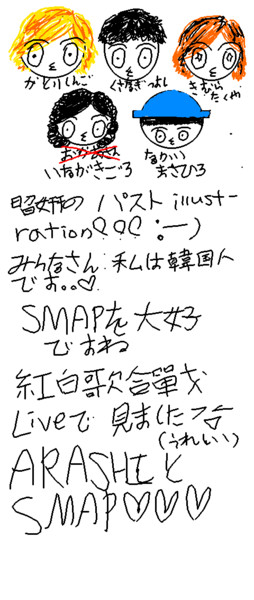 かとりしんご
くさなぎつよし
きむら
たくや
いながきごろ
なかい
まさひろ
パスト illust-
ration
みんなさん 私は韓国人
です。。♡
SMAPを大好
ですね
紅白歌合戦
Liveで見ました
(うれしい)
ARASHIと
SMAP♡♡♡